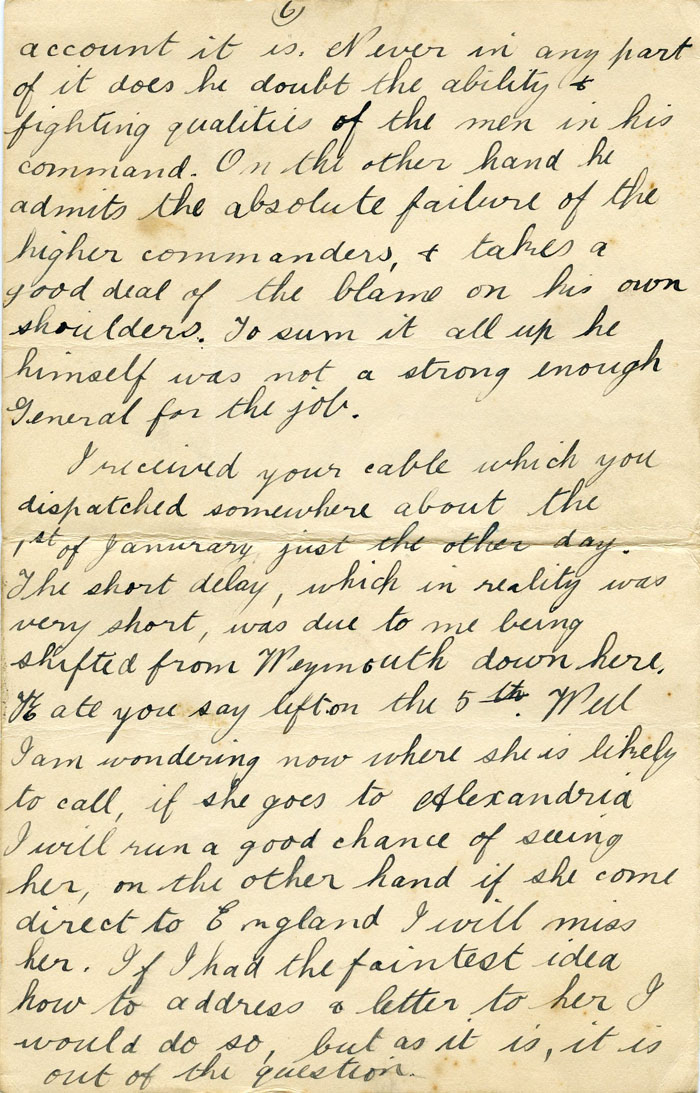 6
account it is. Never in any part
of it does he doubt the ability &
fighting qualities of the men in his
command. On the other hand he
admits the absolute failure of the
higher commanders, & takes a
good deal of the blame on his own
shoulders. To sum it all up he
himself was not a strong enough
General for the job.
I received your cable which you
dispatched somewhere about the
1st of Janurary just the other day.
The short delay, which in reality was
very short, was due to me being
shifted from Weymouth down here.
Kate you say left on the 5th. Well
I am wondering now where she is likely
to call, if she goes to Alexandria
I will run a good chance of seeing
her, on the other hand if she come
direct to England I will miss
her. If I had the faintest idea
how to address a letter to her I
would do so, but as it is, it is
out of the question.